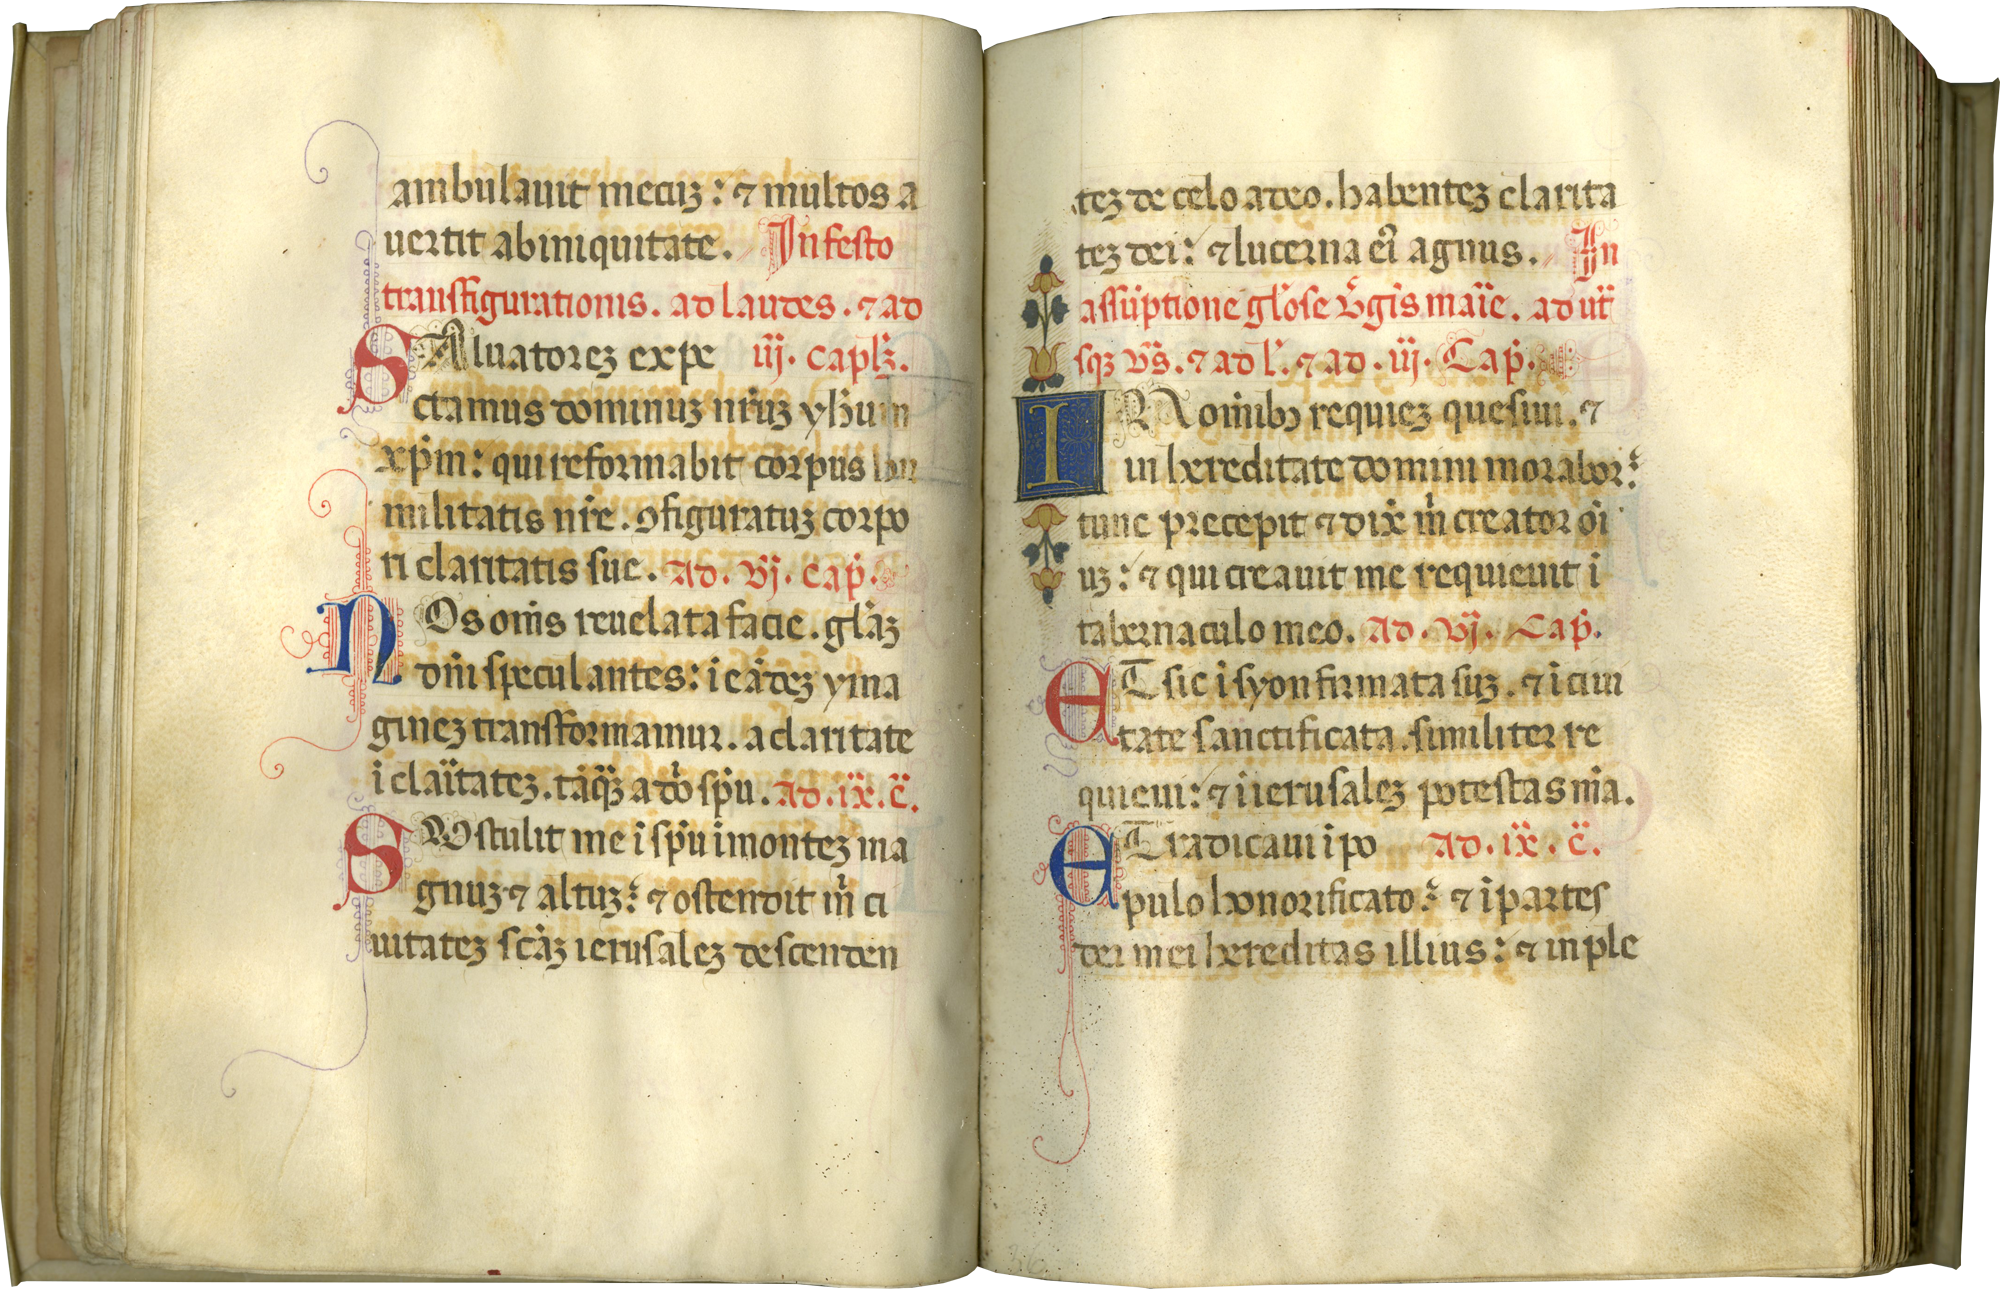 ambulauit mecuꝫ: ⁊ multos a
uertit ab iniquitate. In festo
transfigurationis. ad laudes. ⁊ ad
SAluatoreꝫ expe iij. capl'ꝫ.
ctamus dominuꝫ nr̄uꝫ yħum
xp̄m: qui reformabit corpus hu
militatis nr̄e. ꝯfiguratuꝫ corpo
ri claritatis sue. Ad. vj. cap̄.
NOs om̄s reuelata facie. gl̄aꝫ
dn̄i speculantes: ī eādeꝫ yma
gineꝫ transformamur. a claritate
ī claītateꝫ. tāqꝫ a dō sp̄u. Ad. ix. c̄.
SUstulit me ī sp̄u ī monteꝫ ma
gnuꝫ ⁊ altuꝫ: ⁊ ostendit m̄ ci
uitateꝫ sc̄aꝫ ierusaleꝫ descenden
teꝫ de celo a deo. habenteꝫ clarita
teꝫ dei: ⁊ lucerna eī agnus. In
assūptione gl'ose v̄gīs maīe. ad ut̄
sqꝫ vs̄. ⁊ ad l'. ⁊ ad. iij. Cap̄.
IN om̄ibꝫ requieꝫ quesiui. ⁊
in hereditate domini morabor:
tunc precepit ⁊ dix̄ m̄ creator oī
uꝫ: ⁊ qui creauit me requieuit ī
tabernaculo meo. Ad. vj. Cap̄.
ET sic ī syon firmata suꝫ. ⁊ ī ciui
tate sanctificata. similiter re
quieui: ⁊ ī ierusaleꝫ potestas m̄a.
ET radicaui ī po Ad. ix. c̄.
pulo honorificato: ⁊ ī partes
dei mei hereditas illius: ⁊ in ple
36